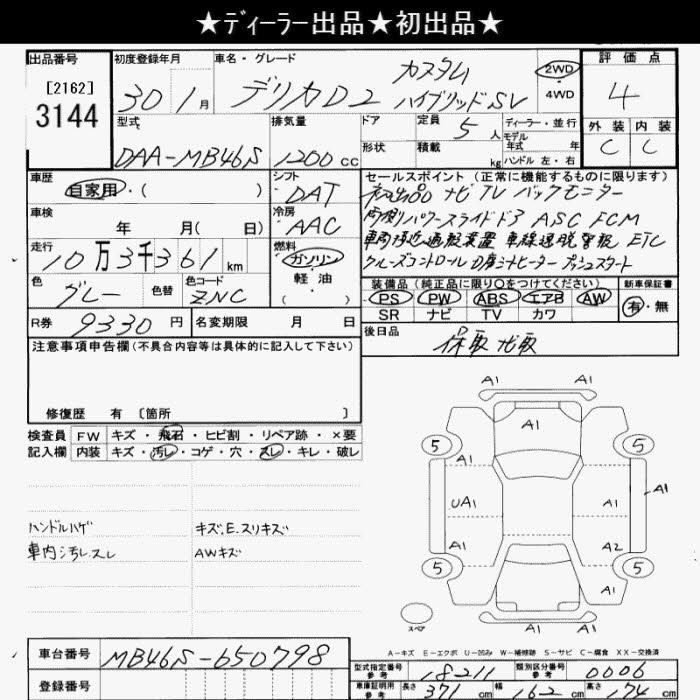 ★ディーラー出品★初出品★
出品番号
[2162]
3144
初度登録年月
30 1月
車名・グレード
デリカD2 カスタム
ハイブリッドSV
2WD
4WD
評価点
4
外装 内装
C C
型式
DAA-MB46S
排気量
1200cc
ドア
形状
定員
5人
積載
kg
ディーラー・並行
モデル
年式 年
ハンドル 左・右
車歴
自家用・( )
シフト
DAT
車検
年 月( 日)
冷房
AAC
走行
10万3千361km
燃料
ガソリン
軽油
( )
色
グレー
色替
色コード
ZNC
R券
9330円
名変期限 月 日
セールスポイント(正常に機能するものに限ります)
初出品 ナビ TV バックモニター
両側パワースライドドア ASC FCM
車両接近通報装置 車線逸脱警報 ETC
クルーズコントロール D席シートヒーター プッシュスタート
装備品(純正品に限り○をつけてください)
PS PW ABS エアB AW
SR ナビ TV カワ
新車保証書
有・無
後日品
保取 ナビ取
注意事項申告欄(不具合内容等は具体的に記入して下さい)
修復歴 有 〔箇所 〕
検査員
記入欄
FW キズ・飛石・ヒビ割・リペア跡・×要
内装 キズ・汚レ・コゲ・穴・スレ・キレ・破レ
ハンドルハゲ
車内汚レ.スレ
キズ.E.スリキズ
AWキズ
A1 A1
A1
5 5
A1
A1
UA1 A1
A1 A2
5 5
A1
A1 A1
スペア
A-キズ E-エクボ U-凹み W-補修跡 S-サビ C-腐食 XX-交換済
車台番号
MB46S-650798
登録番号
型式指定番号
参考
18211
類別区分番号
参考
0006
車庫証明用
参考
長さ 371cm
幅 162cm
高さ 174cm